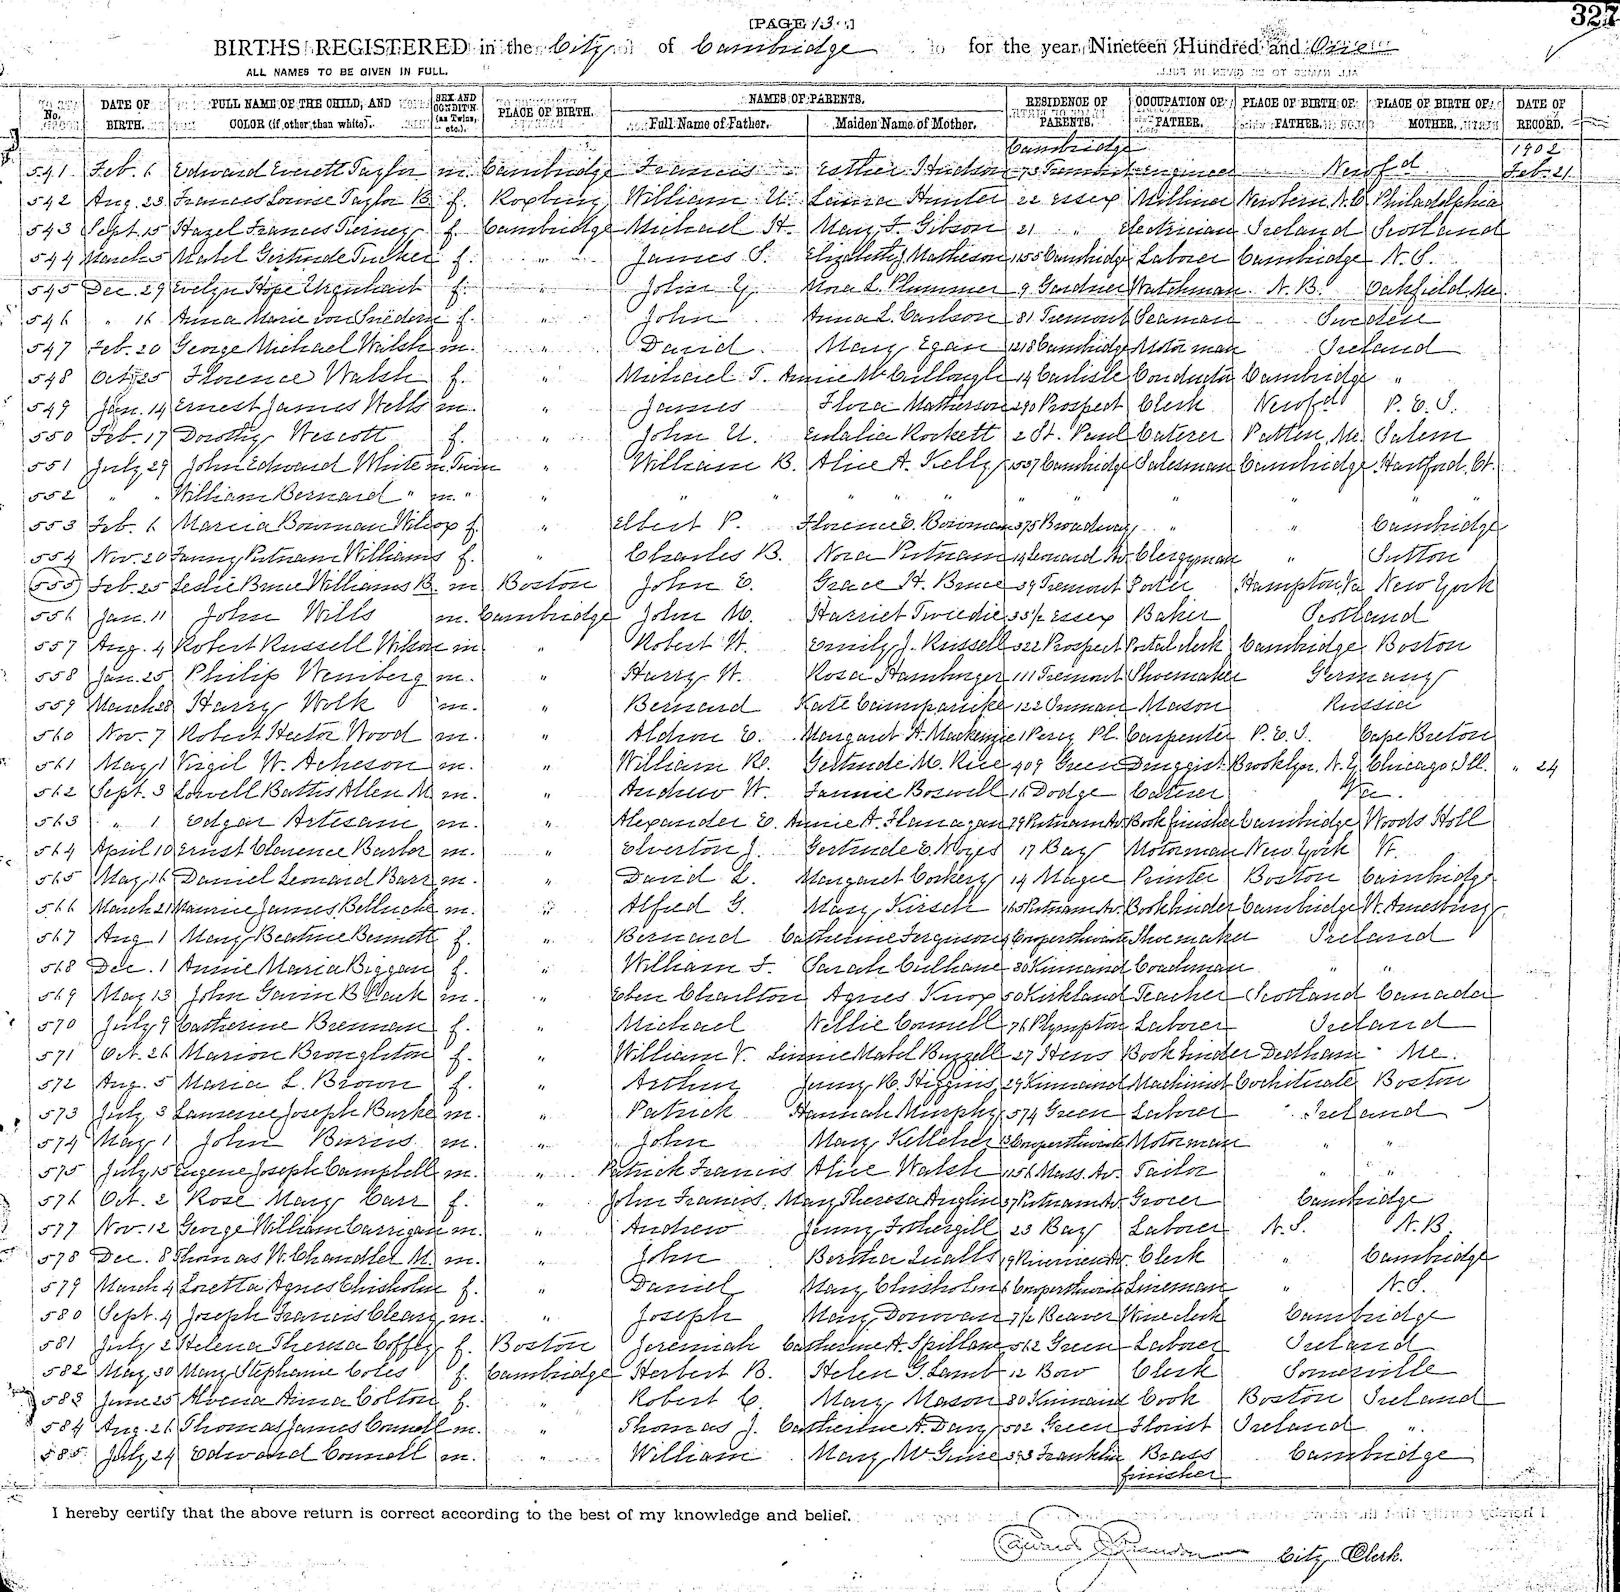 [PAGE 13.]
327
BIRTHS REGISTERED in the City of Cambridge for the year Nineteen Hundred and One
ALL NAMES TO BE GIVEN IN FULL.
No. DATE OF BIRTH. FULL NAME OF THE CHILD, AND COLOR (if other than white). SEX AND CONDIT'N (as Twins, etc.). PLACE OF BIRTH. NAMES OF PARENTS. Full Name of Father. Maiden Name of Mother. RESIDENCE OF PARENTS. OCCUPATION OF FATHER. PLACE OF BIRTH OF FATHER. PLACE OF BIRTH OF MOTHER. DATE OF RECORD.
Cambridge 1902
541 Feb. 6 Edward Everett Taylor m. Cambridge Francis Esther Hudson 75 Tremont Engineer Newf'd Feb. 21
542 Aug. 23 Frances Louise Taylor B. f. Roxbury William U. Laura Hunter 22 Essex Milliner Newbern N.C. Philadelphia
543 Sept. 15 Hazel Frances Tierney f. Cambridge Michael H. Mary F. Gibson 21 " Electrician Ireland Scotland
544 March 5 Mabel Gertrude Tucker f. " James S. Elizabeth Matheson 1155 Cambridge Laborer Cambridge N.S.
545 Dec. 29 Evelyn Hope Urquhart f. " John G. Nora L. Plummer 9 Gardner Watchman N.B. Oakfield, Me.
546 " 16 Anna Marie von f. " John Anna L. Carlson 81 Tremont Seaman Sweden
547 Feb. 20 George Michael Walsh m. " David Mary Egan 1218 Cambridge Motorman Ireland
548 Oct. 25 Florence Walsh f. " Michael T. Annie McCullough 14 Carlisle Conductor Cambridge "
549 Jan. 14 Ernest James Wells m. " James Flora Matherson 290 Prospect Clerk Newf'd P.E.I.
550 Feb. 17 Dorothy Wescott f. " John U. Eulalia Rockett 2 St. Paul Caterer Patten, Me. Salem
551 July 29 John Edward White m. Twin " William B. Alice A. Kelly 1557 Cambridge Salesman Cambridge Hartford, Ct.
552 " " William Bernard " m. " " " " " " " "
553 Feb. 6 Marcia Bowman Wilcox f. " Elbert P. Florence E. Bowman 375 Broadway " " Cambridge
554 Nov. 20 Fanny Putnam Williams f. " Charles B. Nora Putnam 14 Leonard Av. Clergyman " Sutton
555 Feb. 25 Leslie Bruce Williams B. m. Boston John E. Grace H. Bruce 59 Tremont Porter Hampton, Va. New York
556 Jan. 11 John Wills m. Cambridge John M. Harriet Tweedie 35½ Essex Baker Scotland
557 Aug. 4 Robert Russell Wilson m. " Robert H. Emily J. Russell 322 Prospect Postal clerk Cambridge Boston
558 Jan. 25 Philip Weinberg m. " Harry H. Rosa Hamburger 111 Tremont Shoemaker Germany
559 March 28 Harry Wolk m. " Bernard Kate 122 Inman Mason Russia
560 Nov. 7 Robert Hector Wood m. " E. Margaret A. Mackenzie 1 Percy Pl. Carpenter P.E.I. Cape Breton
561 May 1 Virgil W. Acheson m. " William R. Gertrude M. Rice 409 Green Druggist Brooklyn, N.Y. Chicago Ill. " 24
562 Sept. 3 Lowell Battis Allen M. m. " Andrew W. Fannie Boswell 16 Dodge Caterer Va.
563 " 1 Edgar Artesani m. " Alexander E. Annie A. Flanagan 79 Putnam Av. Book finisher Cambridge Woods Holl
564 April 10 Ernst Clarence Barber m. " Elverton J. Gertrude E. Noyes 17 Bay Motorman New York Vt.
565 May 16 Daniel Leonard Barr m. " David L. Margaret Corkery 14 Magee Printer Boston Cambridge
566 March 21 Maurice James m. " Alfred G. Mary Kirsch 165 Putnam Av. Bookbinder Cambridge W. Amesbury
567 Aug. 1 Mary Beatrice Bennett f. " Bernard Catherine Ferguson 9 Cowperthwaite Shoemaker Ireland
568 Dec. 1 Annie Maria Biggan f. " William F. Sarah Culhane 30 Kinnaird Coachman " "
569 May 13 John Gavin Black m. " Eben Charlton Agnes Knox 50 Kirkland Teacher Scotland Canada
570 July 9 Catherine Brennan f. " Michael Nellie Connell 76 Plympton Laborer Ireland
571 Oct. 26 Marion Broughton f. " William V. Linnie Mabel Buzzell 27 Hews Bookbinder Dedham Me.
572 Aug. 5 Maria L. Brown f. " Arthur Jenny R. Higgins 29 Kinnaird Machinist Cochituate Boston
573 July 3 Laurence Joseph Burke m. " Patrick Hannah Murphy 574 Green Laborer Ireland
574 May 1 John Burns m. " John Mary Kelleher 13 Cowperthwaite Motorman " "
575 July 15 Eugene Joseph Campbell m. " Patrick Francis Alice Walsh 1156 Mass. Av. Tailor " "
576 Oct. 2 Rose Mary Carr f. " John Francis Mary Theresa Anglin 37 Putnam Av. Grocer Cambridge
577 Nov. 12 George William Carrigan m. " Andrew Jenny Fothergill 23 Bay Laborer N.S. N.B.
578 Dec. 8 Thomas W. Chandler M. m. " John Bertha Qualls 19 Clerk " Cambridge
579 March 4 Loretta Agnes Chisholm f. " Daniel Mary Chisholm Cowperthwaite Lineman " N.S.
580 Sept. 4 Joseph Francis Cleary m. " Joseph Mary Donovan 7½ Beaver Wine clerk Cambridge
581 July 2 Helena Theresa Coffey f. Boston Jeremiah Catherine A. Spillane 562 Green Laborer Ireland
582 May 30 Mary Stephanie Coles f. Cambridge Herbert B. Helen G. Lamb 12 Bow Clerk Somerville
583 June 25 Alvena Anna Colton f. " Robert C. Mary Mason 80 Kinnaird Cook Boston Ireland
584 Aug. 26 Thomas James Connell m. " Thomas J. Catherine A. Davy 502 Green Florist Ireland "
585 July 24 Edward Connell m. " William Mary McGuire 373 Franklin Brass finisher Cambridge
I hereby certify that the above return is correct according to the best of my knowledge and belief.
City Clerk.